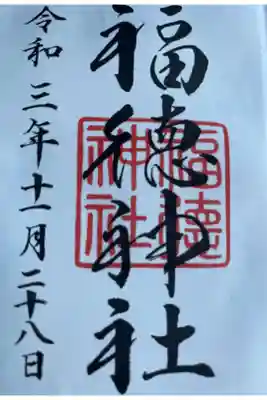 福徳神社
福徳
神社
令和三年十一月二十八日